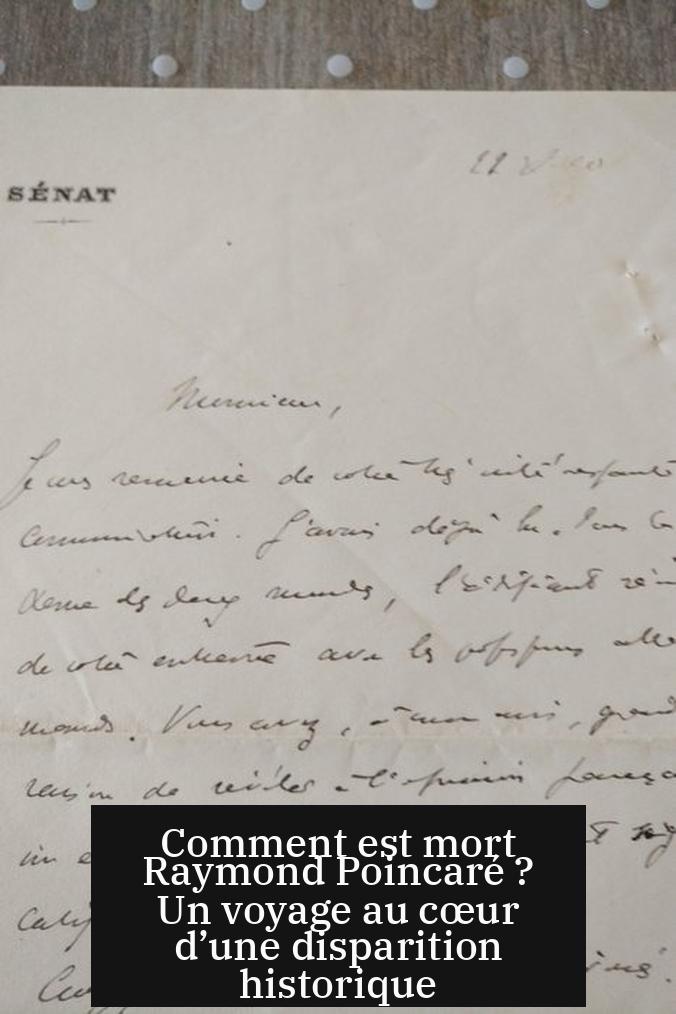 SÉNAT
Monsieur,
Je vous remercie de votre très intéressante
communication. J'avais déjà lu, dans la
Revue des deux mondes, l'édifiant réci
de votre entrevue avec les professeurs alle
mands. Vous avez, à mon avis, grand
raison de révéler à l'opinion frança
un
Comment est mort
Raymond Poincaré ?
Un voyage au cœur
d’une disparition
historique